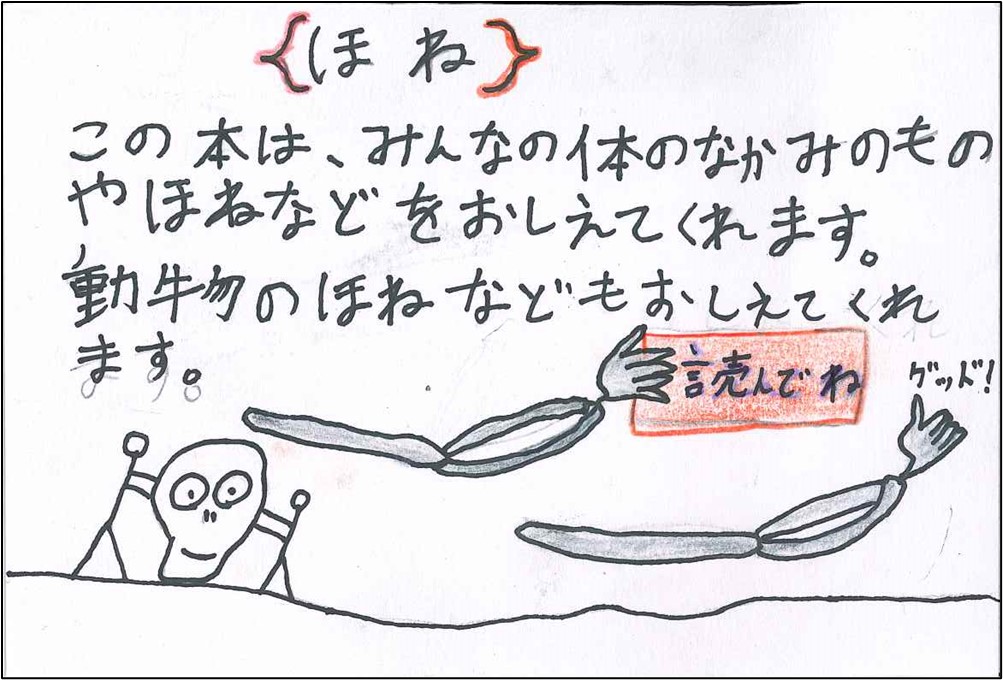 {ほね}
この本は、みんなの体のなかみのもの
やほねなどをおしえてくれます。
動物のほねなどもおしえてくれ
ます。
読んでね
グッド!